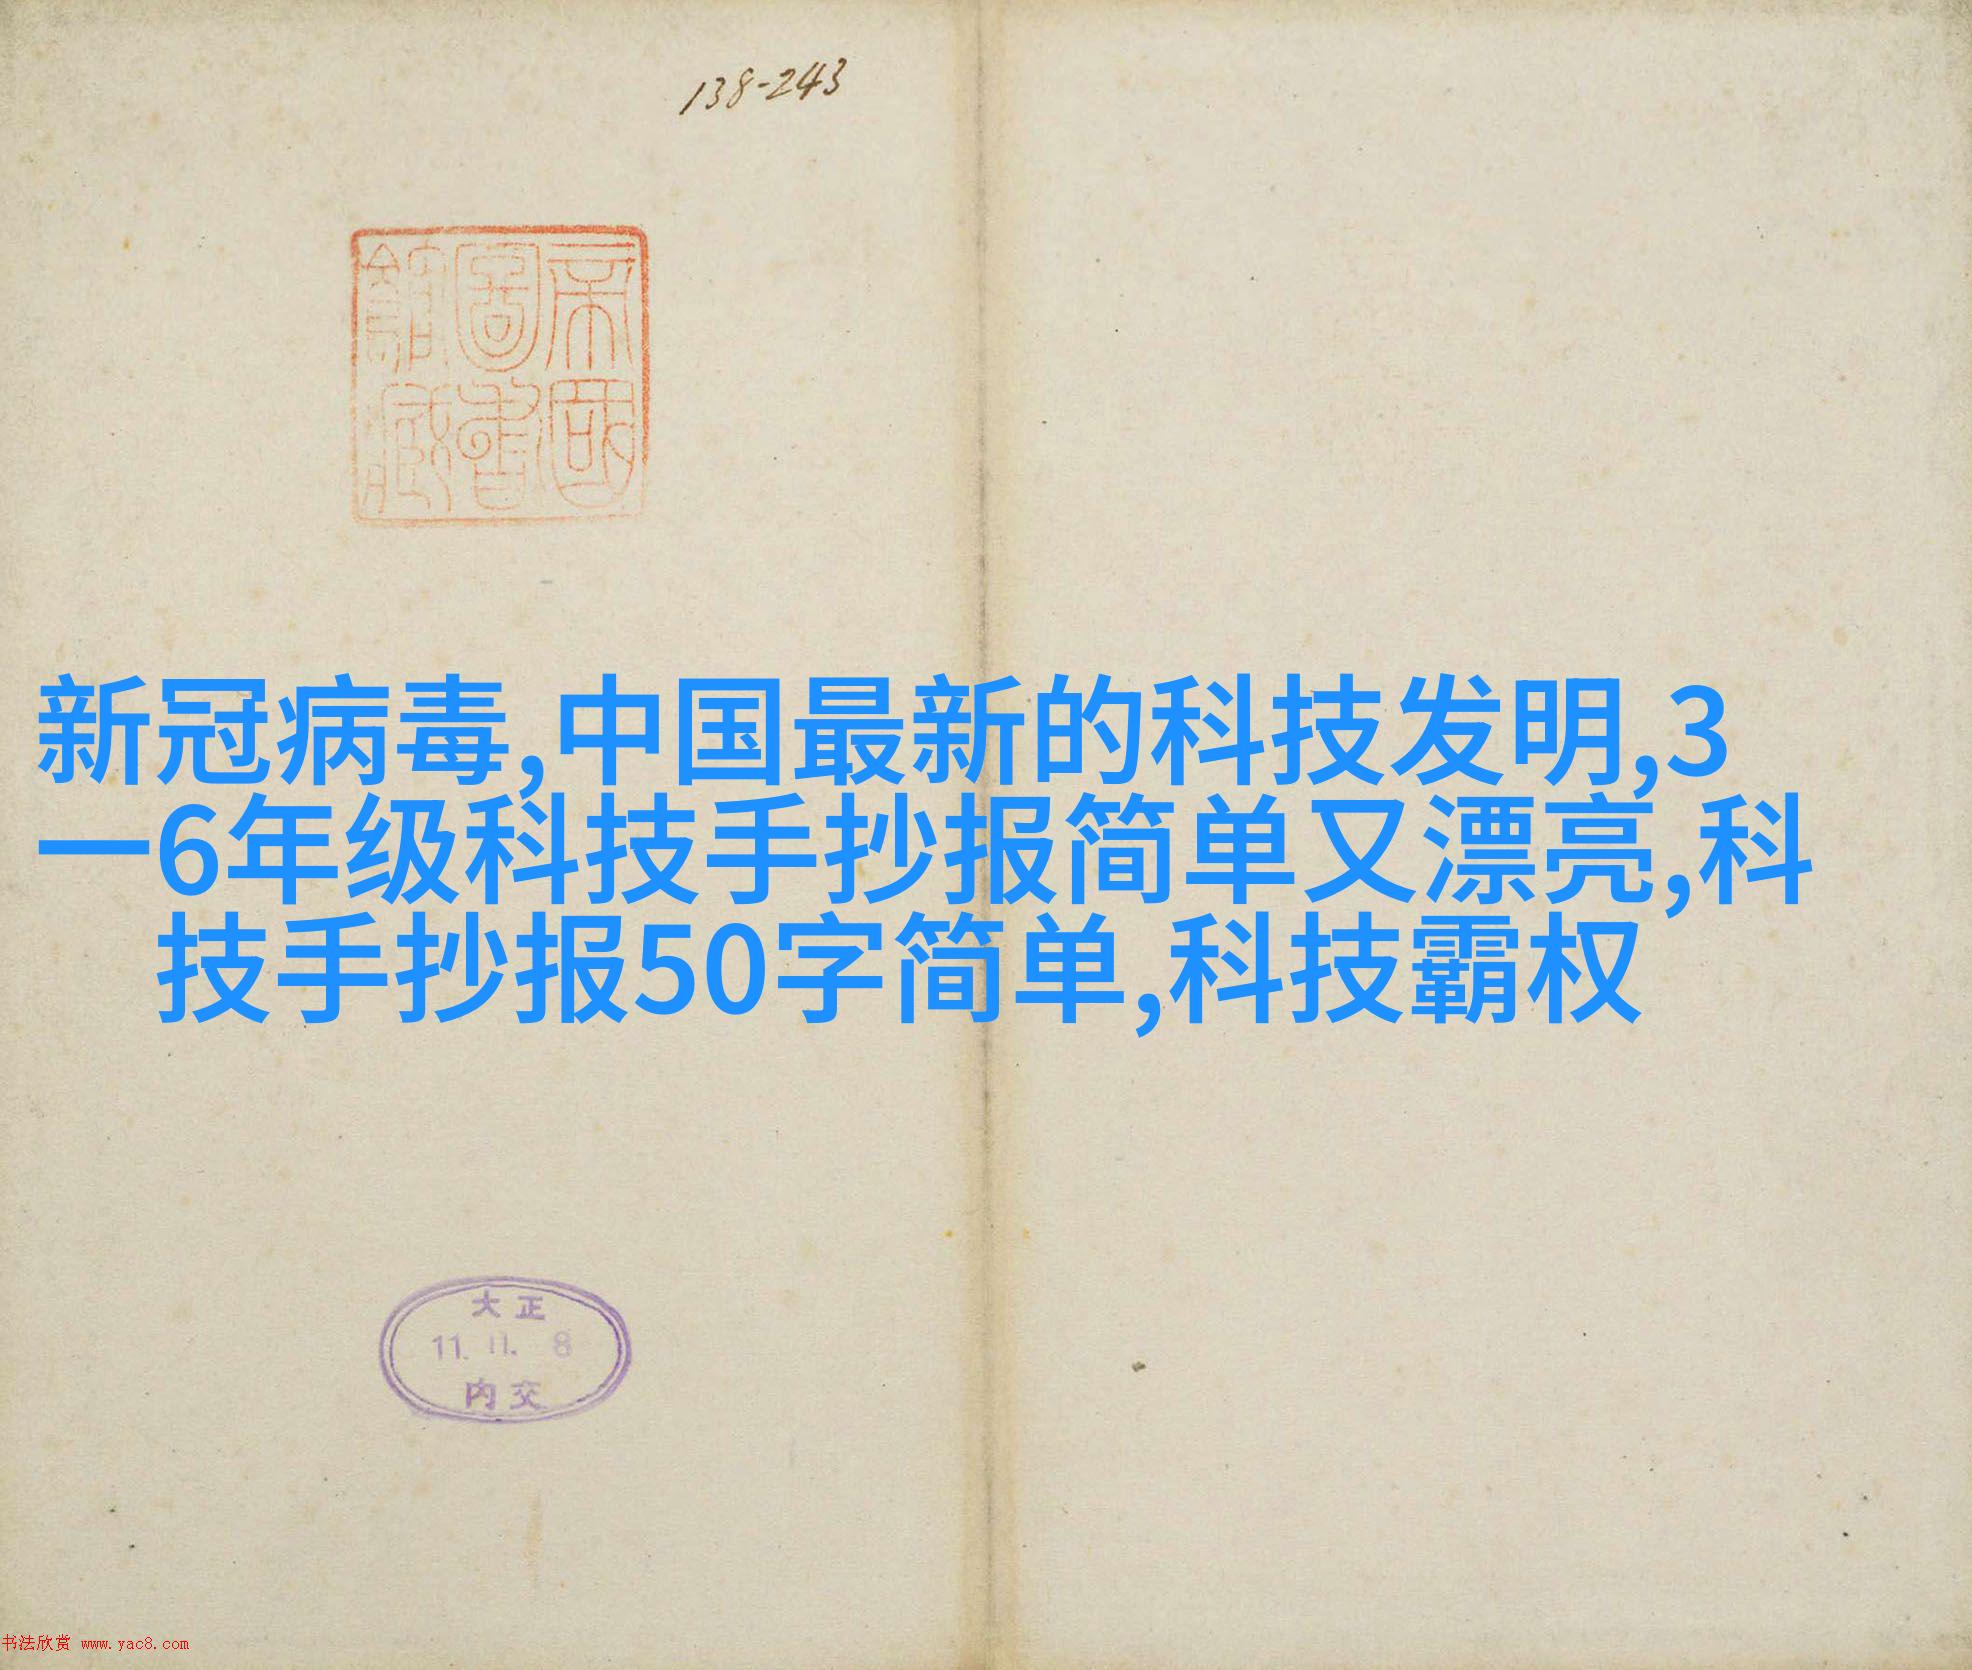 138-243
帝國
圖書
館藏
新冠病毒,中国最新的科技发明,3
一6年级科技手抄报简单又漂亮,科
技手抄报50字简单,科技霸权
大正
11.11.8
内交
书法欣赏 www.yac8.com